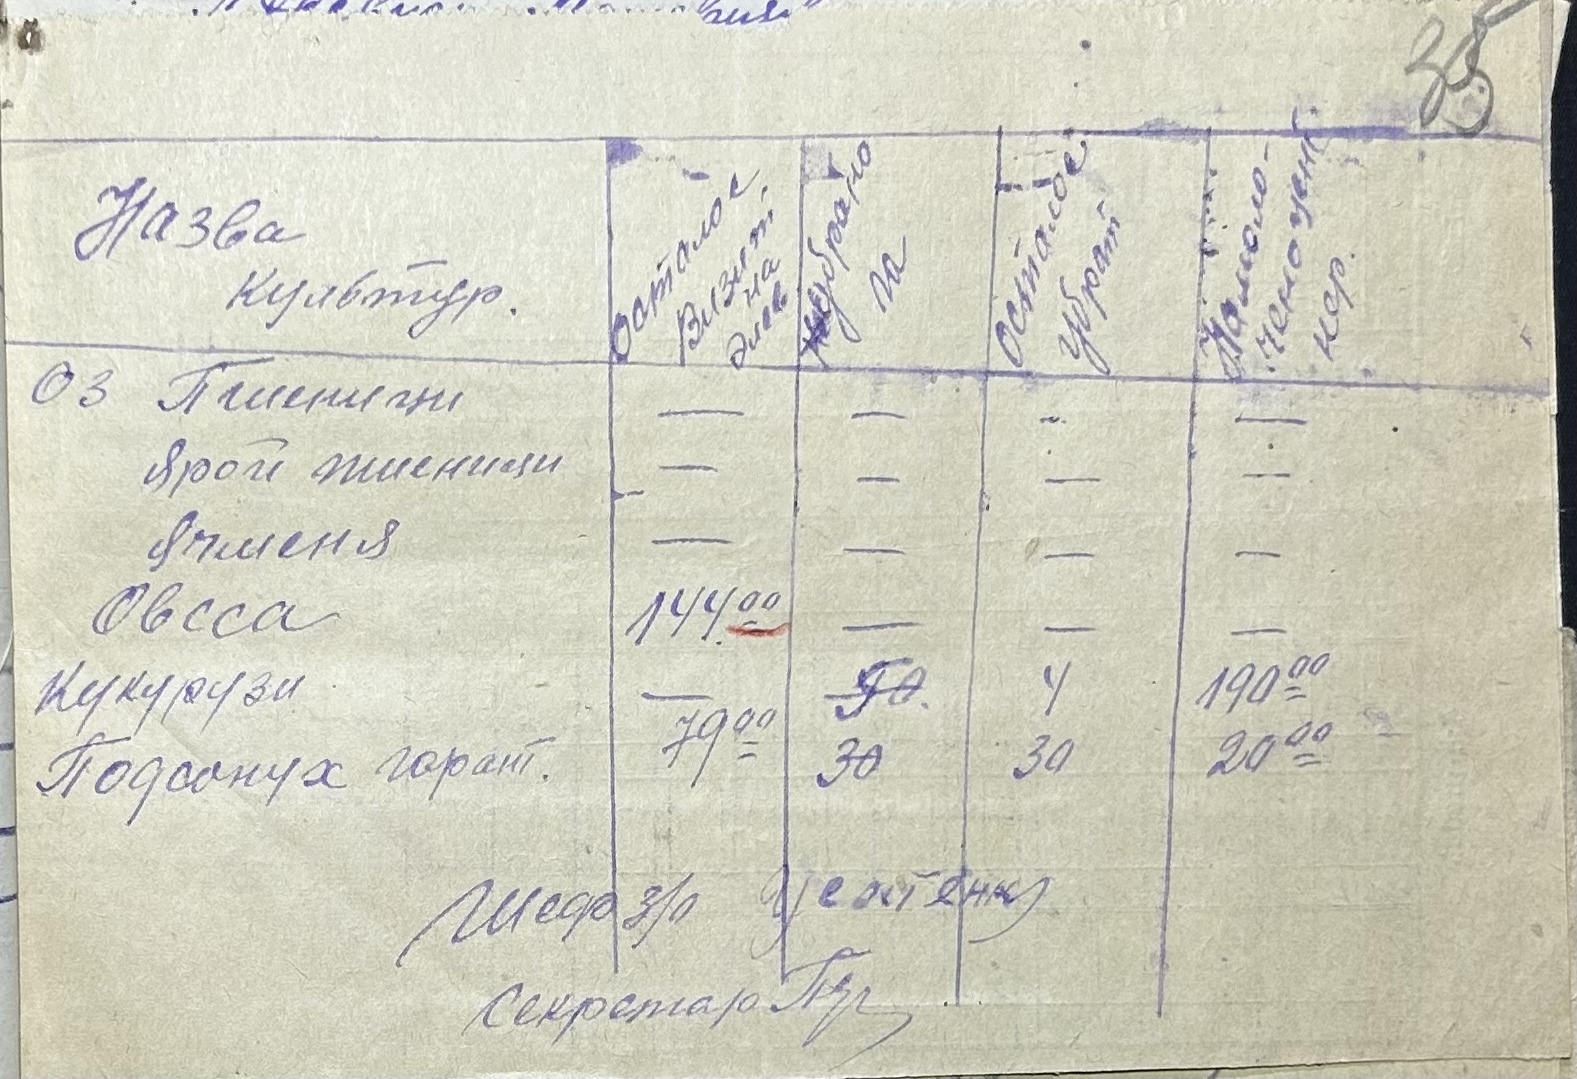 35
Назва
Культур.
Осталос
Взит
на
элев
убрано
га
Осталос
убрат
Намоло-
чено цент
нер.
Оз Пшеници — — - —
Ярой пшеници — — — —
Ячменя — — — —
Овсса 144 00 — — —
Кукурузи — 50. 4 190 00
Подсонух горант. 79 00 30 30 20 00
Шеф з/о
Секретар